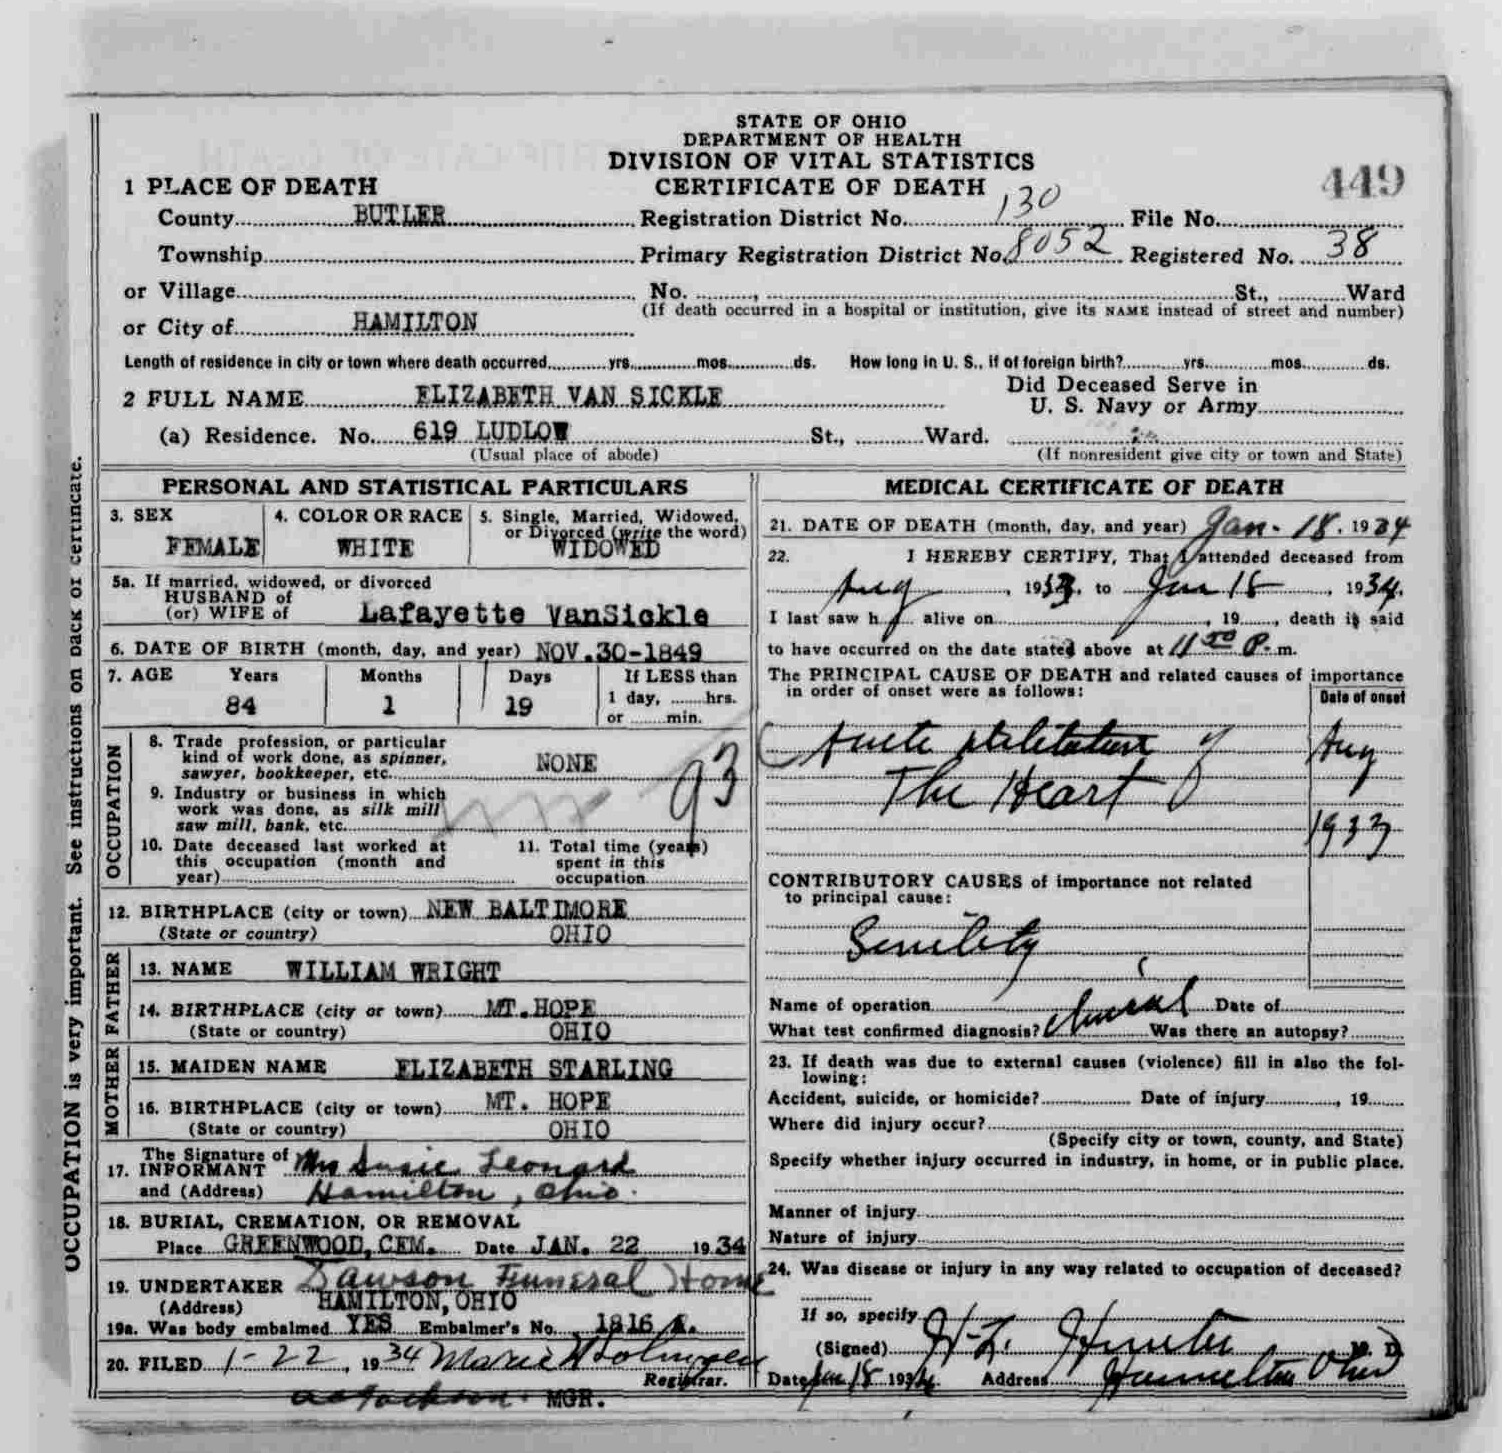 STATE OF OHIO
DEPARTMENT OF HEALTH
DIVISION OF VITAL STATISTICS
CERTIFICATE OF DEATH
449
1 PLACE OF DEATH
County BUTLER Registration District No. 130 File No.
Township Primary Registration District No. 8052 Registered No. 38
or Village No. , St., Ward
(If death occurred in a hospital or institution, give its NAME instead of street and number)
or City of HAMILTON
Length of residence in city or town where death occurred yrs. mos. ds. How long in U. S., if of foreign birth? yrs. mos. ds.
2 FULL NAME ELIZABETH VAN SICKLE
Did Deceased Serve in
U. S. Navy or Army
(a) Residence. No. 619 LUDLOW St., Ward.
(Usual place of abode) (If nonresident give city or town and State)
PERSONAL AND STATISTICAL PARTICULARS
3. SEX
FEMALE
4. COLOR OR RACE
WHITE
5. Single, Married, Widowed,
or Divorced (write the word)
WIDOWED
5a. If married, widowed, or divorced
HUSBAND of
(or) WIFE of Lafayette VanSickle
6. DATE OF BIRTH (month, day, and year) NOV.30-1849
7. AGE Years Months Days If LESS than
1 day, hrs.
or min.
84 1 19
OCCUPATION
8. Trade profession, or particular
kind of work done, as spinner,
sawyer, bookkeeper, etc. NONE
93
9. Industry or business in which
work was done, as silk mill
saw mill, bank, etc.
10. Date deceased last worked at
this occupation (month and
year)
11. Total time (years)
spent in this
occupation
12. BIRTHPLACE (city or town) NEW BALTIMORE
(State or country) OHIO
FATHER
13. NAME WILLIAM WRIGHT
14. BIRTHPLACE (city or town) MT.HOPE
(State or country) OHIO
MOTHER
15. MAIDEN NAME ELIZABETH STARLING
16. BIRTHPLACE (city or town) MT. HOPE
(State or country) OHIO
The Signature of
17. INFORMANT Mrs Susie Leonard
and (Address) Hamilton, Ohio.
18. BURIAL, CREMATION, OR REMOVAL
Place GREENWOOD, CEM. Date JAN. 22 1934
19. UNDERTAKER Dawson Funeral Home
(Address) HAMILTON, OHIO
19a. Was body embalmed YES Embalmer's No. 1816 A.
20. FILED 1-22, 1934 Marie
Registrar.
MGR.
OCCUPATION is very important. See instructions on back of certificate.
MEDICAL CERTIFICATE OF DEATH
21. DATE OF DEATH (month, day, and year) Jan. 18. 1934
22. I HEREBY CERTIFY, That I attended deceased from
Aug, 1933, to Jan 18, 1934.
I last saw h alive on , 19 , death is said
to have occurred on the date stated above at 11 50 P. m.
The PRINCIPAL CAUSE OF DEATH and related causes of importance
in order of onset were as follows:
Date of onset
Acute dilitation of Aug
The Heart
1933
CONTRIBUTORY CAUSES of importance not related
to principal cause:
Senility
Name of operation Date of
What test confirmed diagnosis? Clinical Was there an autopsy?
23. If death was due to external causes (violence) fill in also the fol-
lowing:
Accident, suicide, or homicide? Date of injury , 19
Where did injury occur?
(Specify city or town, county, and State)
Specify whether injury occurred in industry, in home, or in public place.
Manner of injury
Nature of injury
24. Was disease or injury in any way related to occupation of deceased?
If so, specify
(Signed) H. L. Hunter M. D.
Date Jan 18 1934. Address Hamilton Ohio